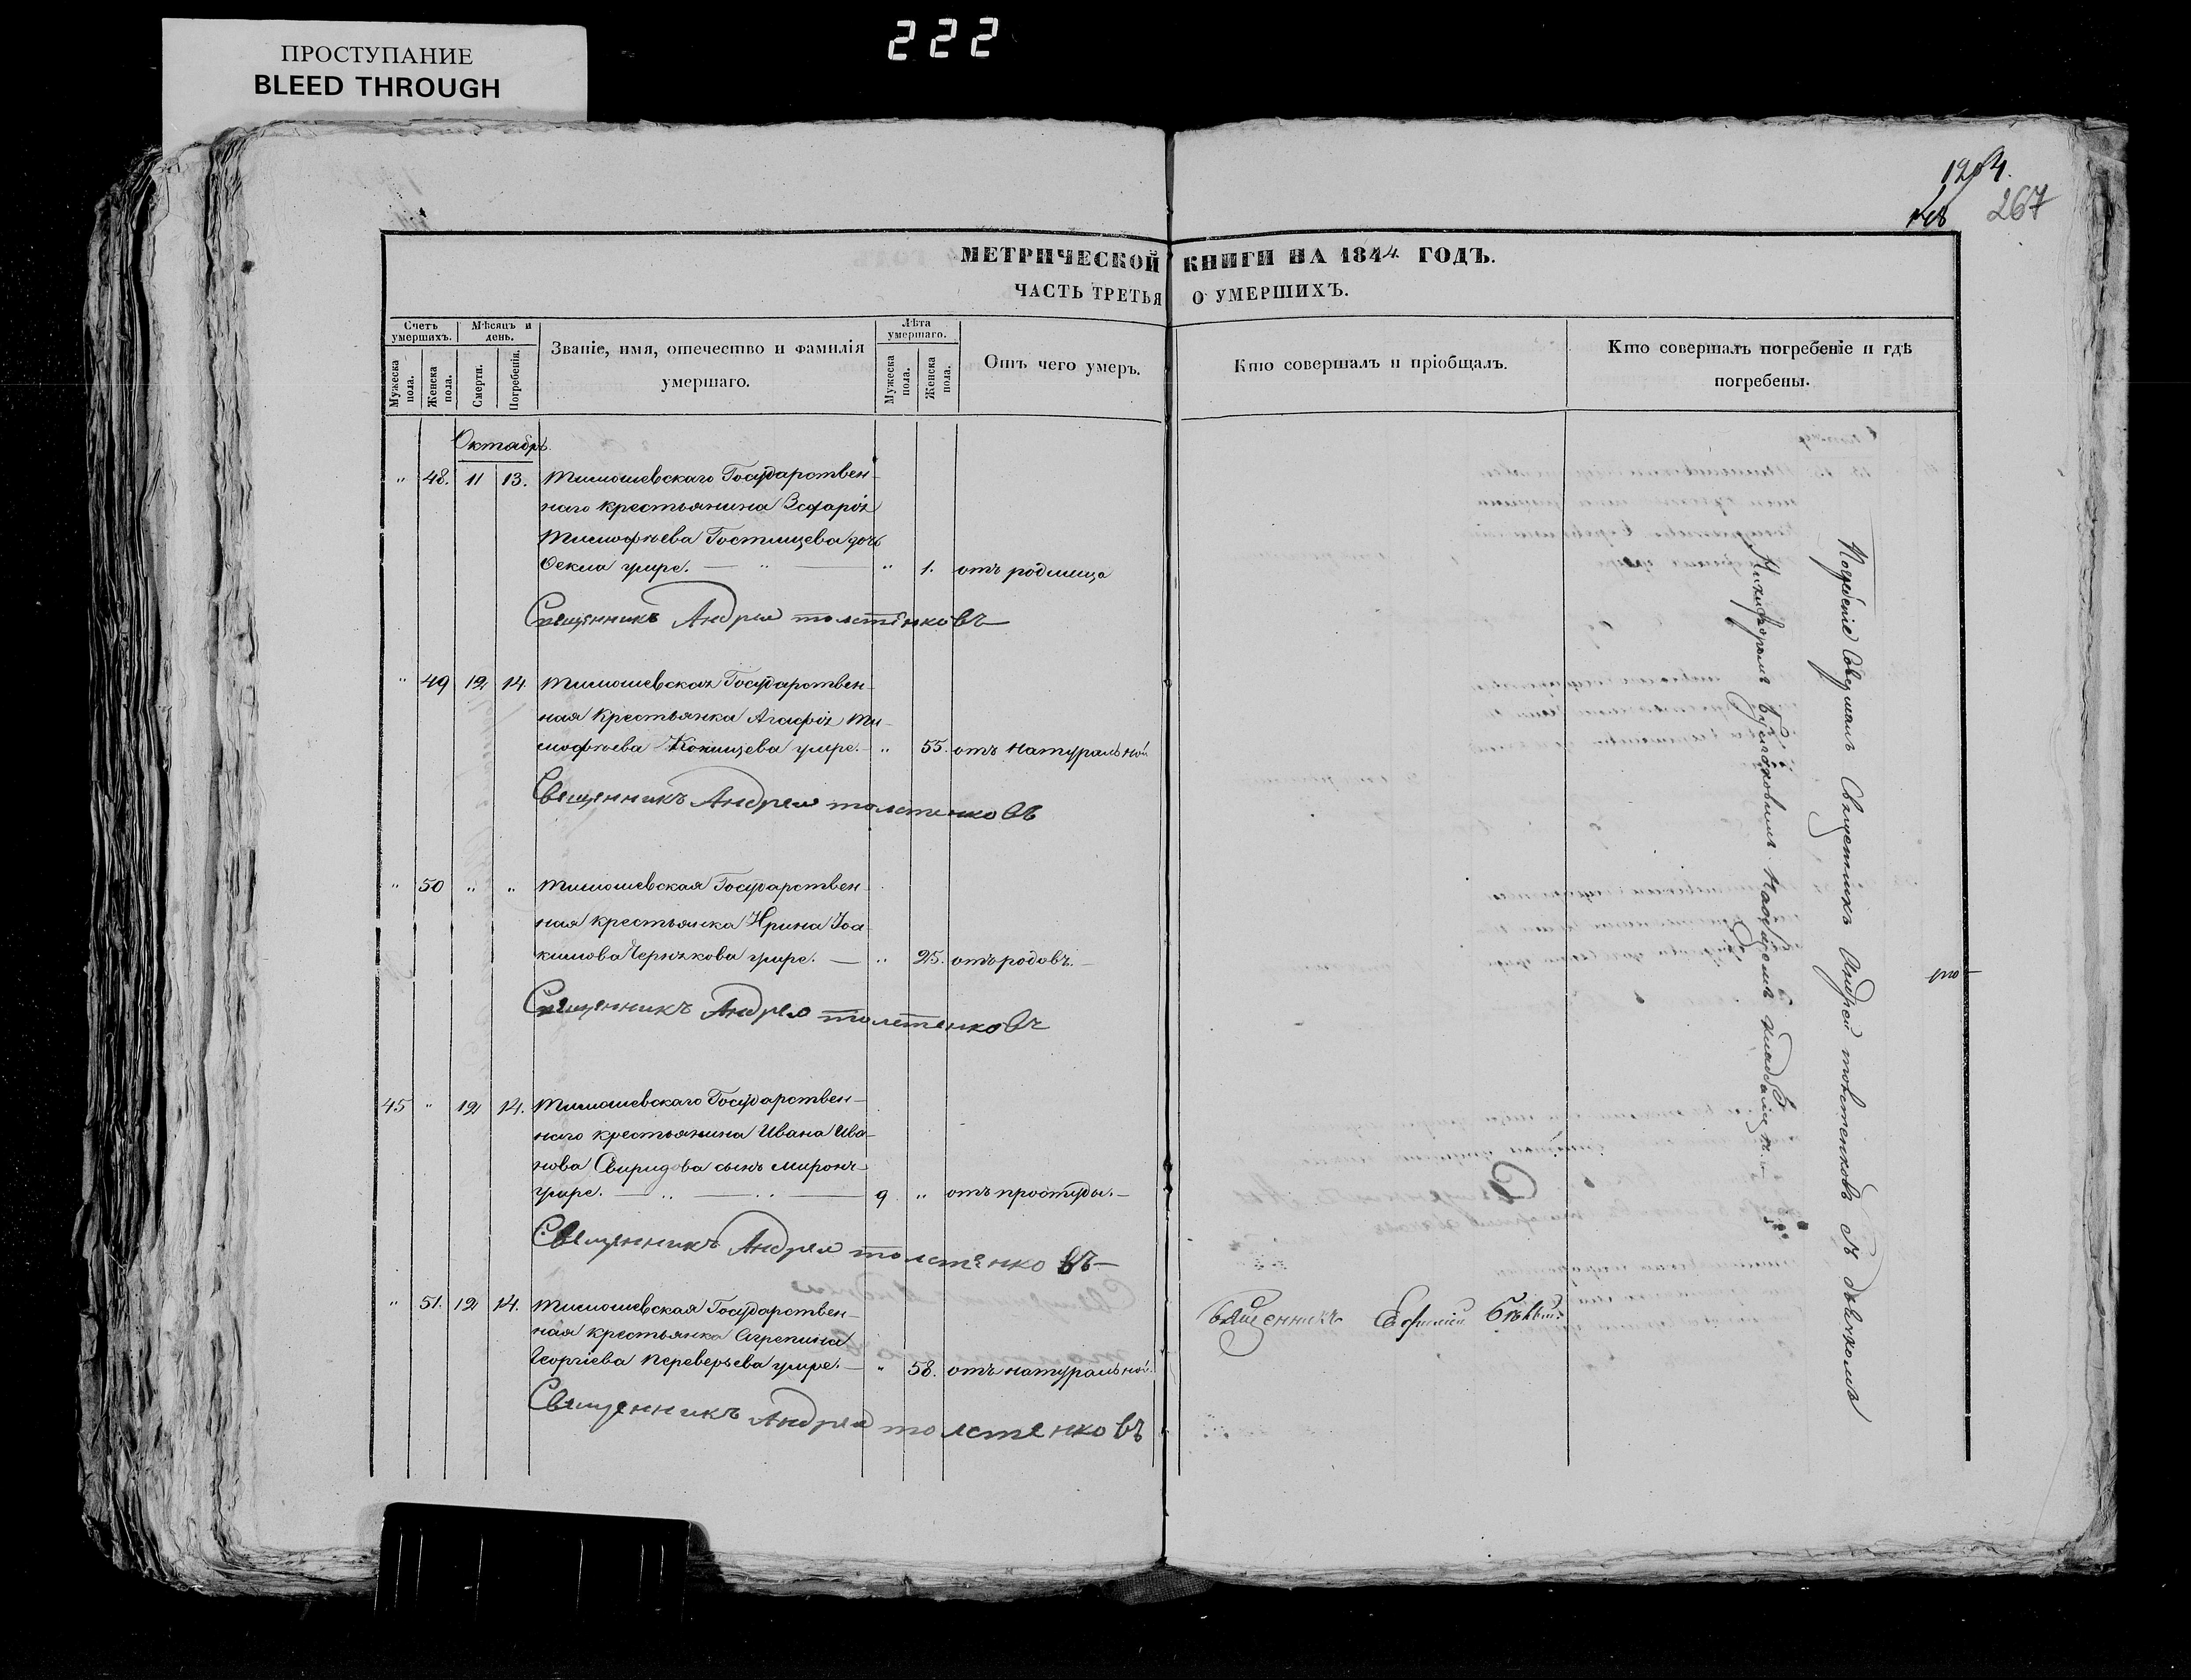 ПРОСТУПАНИЕ
BLEED THROUGH
222
267
МЕТРИЧЕСКОЙ КНИГИ НА 1844 ГОДЪ.
ЧАСТЬ ТРЕТЬЯ О УМЕРШИХЪ.
Счетъ умершихъ.
Мѣсяцъ и день.
Званіе, имя, отечество и фамилія умершаго.
Лѣта умершаго.
Отъ чего умеръ.
Кто совершалъ и пріобщалъ.
Кто совершалъ погребеніе и гдѣ погребены.
Мужеска пола.
Женска пола.
Смерти.
Погребенія.
Мужеска пола.
Женска пола.
Октябрь.
" 48. 11 13. Тимошевскаго Государствен-
наго крестьянина
Тимофѣева Гостищева дочь
Ѳекла умре. — " — " 1. отъ родимца
Священникъ Андрей Толстенковъ
" 49 12 14. Тимошевская Государствен-
ная крестьянка Агафія Ти-
мофѣева умре. — " 55. отъ натуральной
Священникъ Андрей Толстенковъ
" 50 " " Тимошевская Государствен-
ная крестьянка Ирина Іоа-
кимова умре. — " 25. отъ родовъ. —
Священникъ Андрей Толстенковъ
45 " 12 14. Тимошевскаго Государствен-
наго крестьянина Ивана Ива-
нова Свиридова сынъ Миронъ
умре. — " — " — 9 " отъ простуды. —
Священникъ Андрей Толстенковъ
" 51. 12 14. Тимошевская Государствен-
ная крестьянка Агрепина
Георгіева Переверзева умре. — " 58. отъ натуральной.
Священникъ Андрей Толстенковъ
Священникъ Ефимій
Погребеніе Совершалъ Священникъ Андрей Толстенковъ съ дьячкомъ
Никифоромъ на общемъ кладбищѣ. —